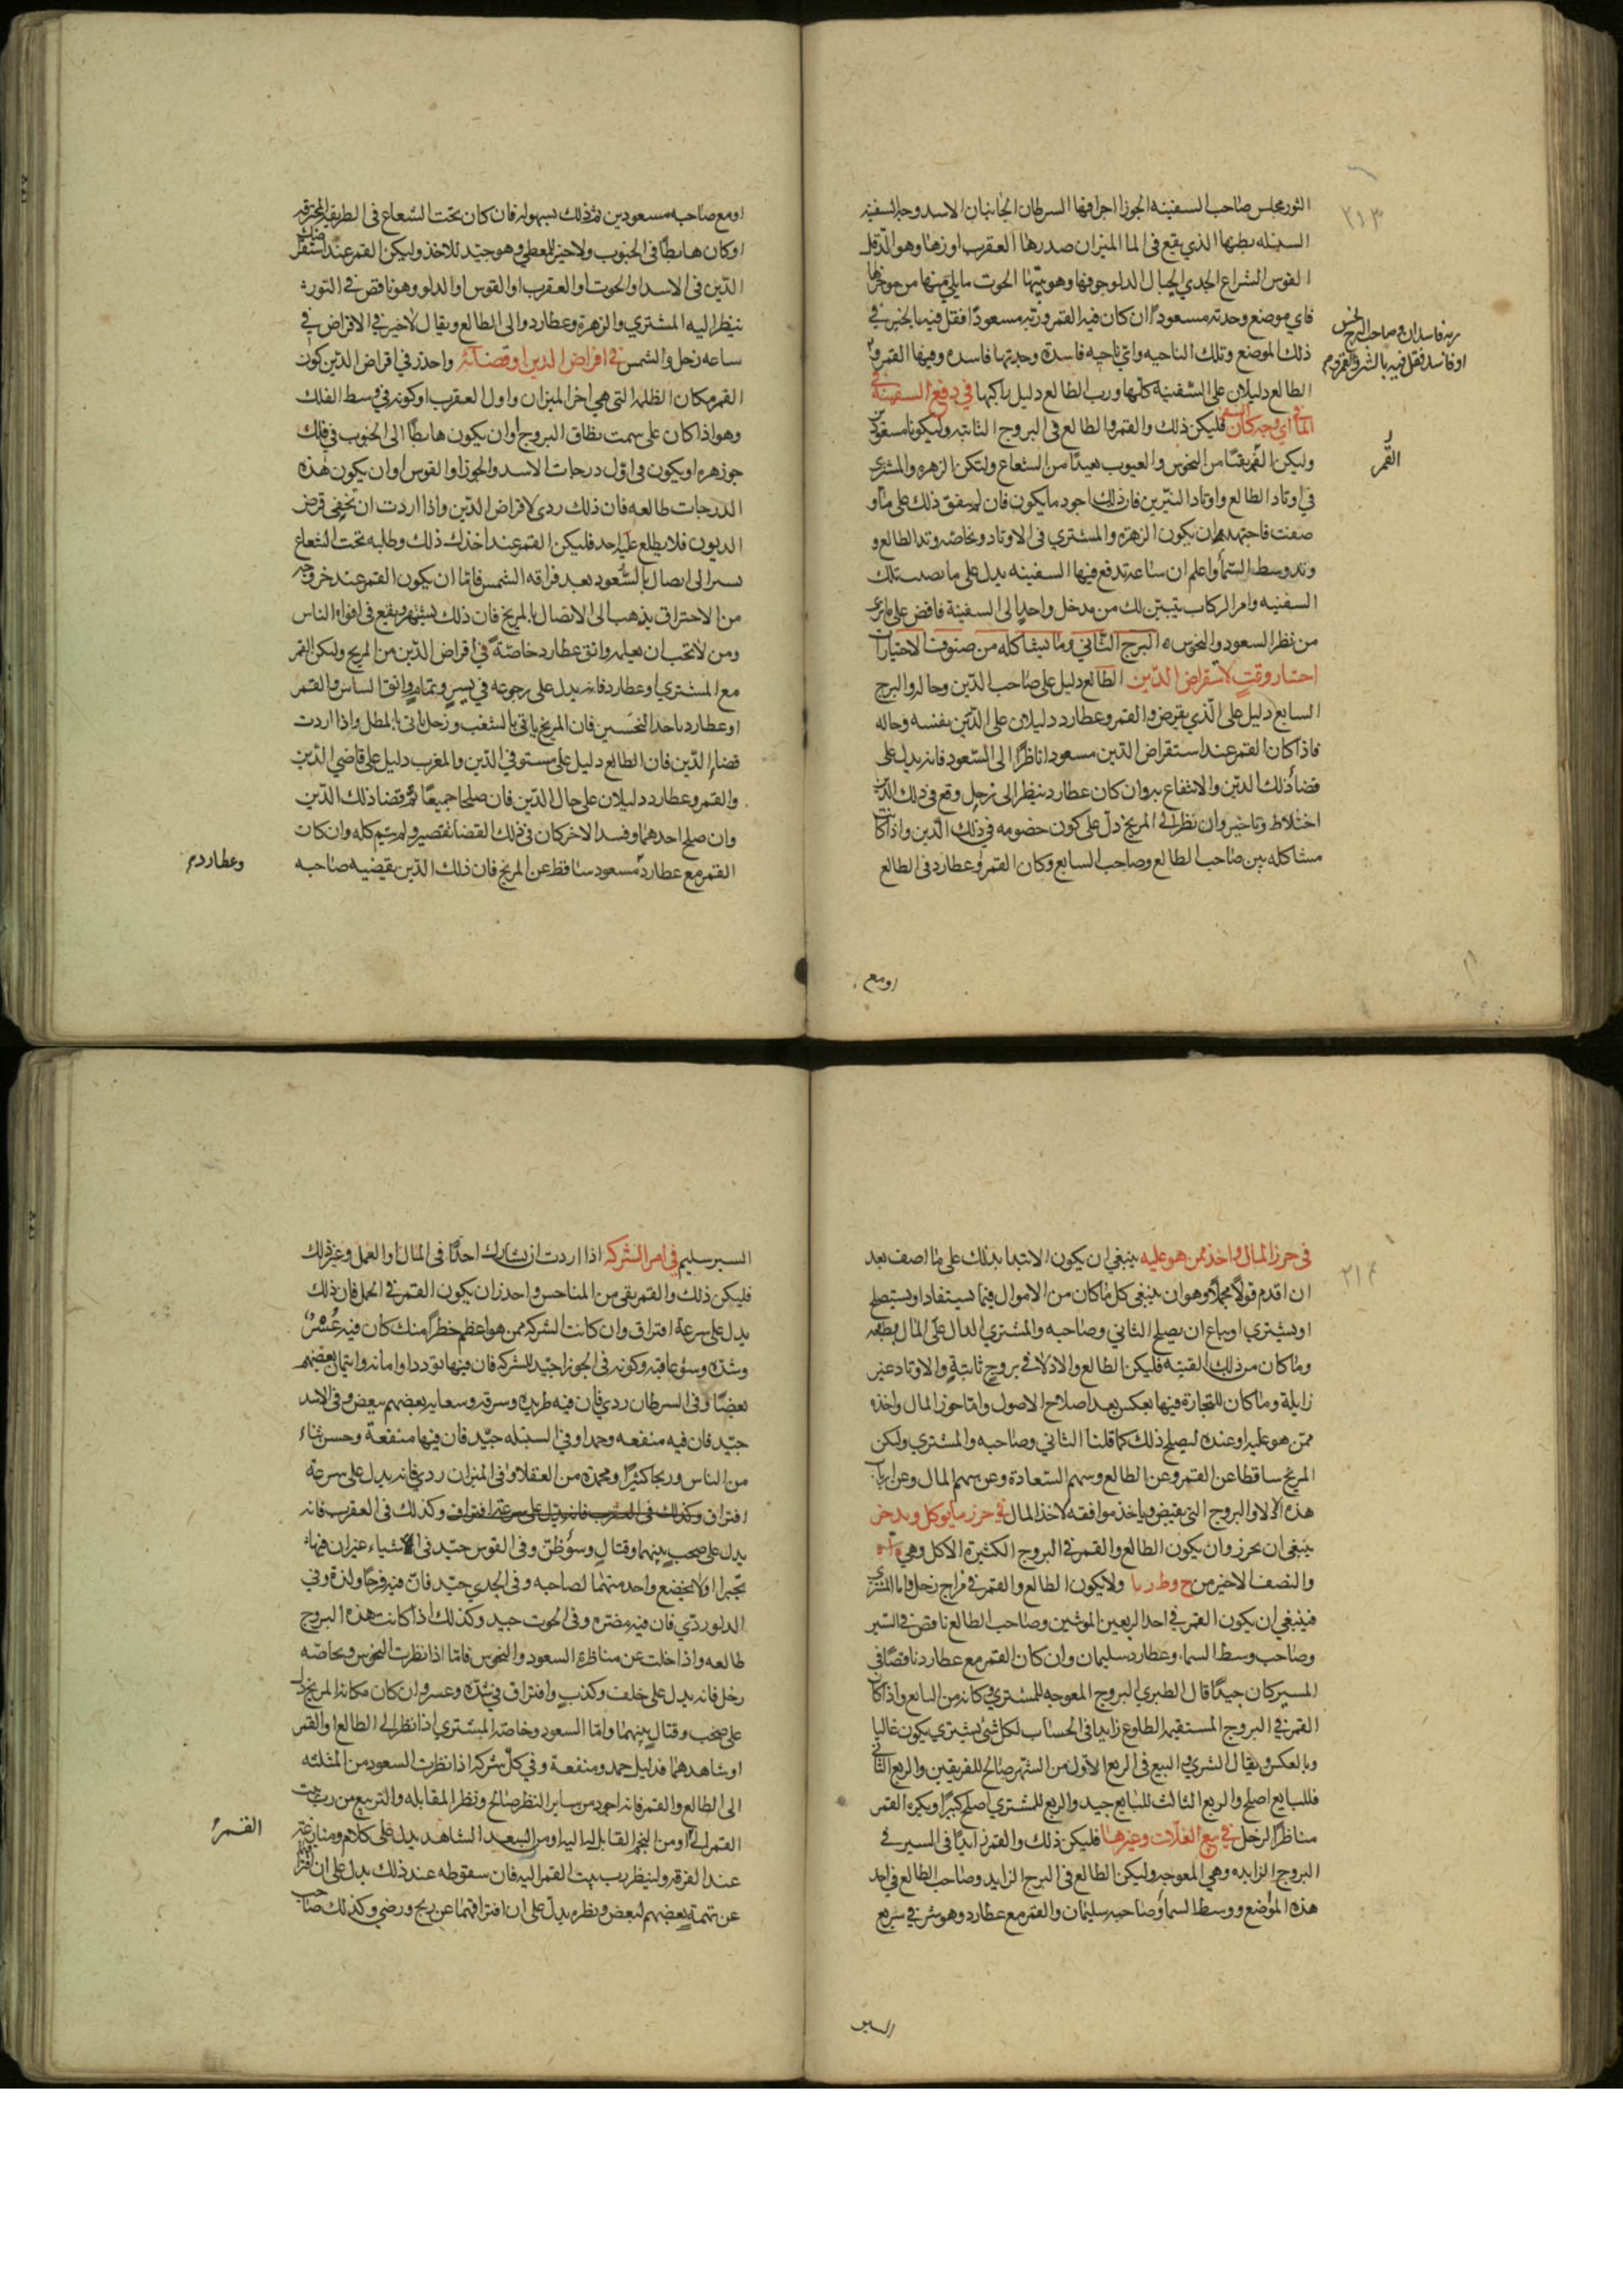 ٢١٣
الثور مجلس صاحب السفينه الجوزا اجرافها السرطان الجانبان الاسد وجه السفينه
السنبله بطنها الذي يقع في الما الميزان صدرها العقرب اوزها وهو الدقل
القوس الشراع الجدي الحبال الدلو جوفها وهو بيتها الحوت ما يلي منها من موخرها
فاي موضع وجدته مسعودًا ان كان فيه القمر وربه مسعودًا فقل فيه بالخير في
ربه فاسدان وصاحب البرج نحس
او فاسد فقل فيه بالشر والقمر وم
ذلك الموضع وتلك الناحيه واي ناحيه فاسدة وجدتها فاسده وفيها القمر و
الطالع دليلان على السفينة كلها ورب الطالع دليل راكبها في دفع السفينة في
الما اي وجه كان فليكن ذلك والقمر والطالع في البروج الثابته وليكونا مسعودين
القمر
وليكن القمر نقيًا من النحوس والعيوب بعيدًا من الشعاع ولتكن الزهره والمشتري
في اوتاد الطالع واوتاد النيرين فان ذلك اجود ما يكون فان لم يتفق ذلك على ما و
صفت فاجتهد ان يكون الزهرة والمشتري في الاوتاد وبخاصة وتد الطالع و
وتد وسط السما واعلم ان ساعة تدفع فيها السفينه يدل على ما يصيب تلك
السفينه وامر الركاب يتبين لك من مدخل واحد الى السفينة فاقض على ما ترى
من نظر السعود والنحوس ه البرج الثاني وما يشاكله من صنوف الاختيارات
اختيار وقت لاستقراض الدين الطالع دليل على صاحب الدين وحاله والبرج
السابع دليل على الذي يقرض والقمر وعطارد دليلان على الدين بنفسه وحاله
فاذا كان القمر عند استقراض الدين مسعودا ناظرًا الى السعود فانه يدل على
قضا ذلك الدين والانتفاع به وان كان عطارد ينظر الى زحل وقع في ذلك الدين
اختلاط وتاخير وان نظر الى المريخ دل على كون خصومه في ذلك الدين واذا كانت
مشاكله بين صاحب الطالع وصاحب السابع وكان القمر وعطارد في الطالع
او مع
او مع صاحبه مسعودين تم ذلك بسهوله فان كان تحت الشعاع في الطريقة المحترقه
او كان هابطًا في الجنوب ولا خير للمعطي وهو جيد للاخذ وليكن القمر عند استقراضك
الدين في الاسد او الحوت او العقرب او القوس او الدلو وهو ناقص في النور
ينظر اليه المشتري والزهرة وعطارد والى الطالع ويقال لا خير في الاقراض في
ساعه زحل والشمس في اقراض الدين او قضائه واحذر في اقراض الدين كون
القمر مكان الظلمة التي هي اخر الميزان واول العقرب او كونه في وسط الفلك
وهو اذا كان على سمت نطاق البروج او ان يكون هابطًا الى الجنوب في فلك
جوزهره او يكون في اول درجات الاسد والجوزا والقوس او ان يكون هذه
الدرجات طالعه فان ذلك ردي لاقراض الدين واذا اردت ان تخفي قرض
الديون فلا يطلع عليه احد فليكن القمر عند اخذك ذلك وطلبه تحت الشعاع
يسير الى اتصال بالسعود بعد فراقه الشمس فاما ان يكون القمر عند خروجه
من الاحتراق يذهب الى الاتصال بالمريخ فان ذلك يشتهر ويقع في افواه الناس
ومن لا تحب ان يعلمه واتق عطارد خاصةً في اقراض الدين من المريخ وليكن القمر
مع المشتري او عطارد فانه يدل على رجوعه في يسير وتمام واتق اتصال القمر
او عطارد باحد النحسين فان المريخ ياتي بالشغب وزحل ياتي بالمطل واذا اردت
قضا الدين فان الطالع دليل على مستوفي الدين والمغرب دليل على قاضي الدين
والقمر وعطارد دليلان على حال الدين فان صلحا جميعًا تم قضا ذلك الدين
وان صلح احدهما وفسد الاخر كان في ذلك القضا تقصير ولم يتم كله وان كان
القمر مع عطارد مسعود ساقط عن المريخ فان ذلك الدين يقضيه صاحبه
وعطارد م
٢١٤
في حرز المال واخذه ممن هو عليه ينبغي ان يكون الابتدا بذلك على ما اصف بعد
ان اقدم قولًا مجملًا وهو ان ينبغي كل ما كان من الاموال فيما يستفاد او يستصلح
او يشتري او يباع ان يصلح الثاني وصاحبه والمشتري الدال على المال بطبعه
وما كان من ذلك القنيه فليكن الطالع والادلا في بروج ثابتة والاوتاد غير
زايلة وما كان للتجارة فيها بعكس بعد اصلاح الاصول واما حوز المال واخذه
ممن هو عليه او عنده ليصلح ذلك كما قلنا الثاني وصاحبه والمشتري وليكن
المريخ ساقطا عن القمر وعن الطالع وسهم السعادة وعن سهم المال وعن ارباب
هذه الادلا والبروج التي يقبض وياخذ موافقه لاخذ المال في حرز ما يوكل ويدخر
ينبغي ان يحرز وان يكون الطالع والقمر في البروج الكثيرة الاكل وهي
والنصف الاخير من ح وط ريا ولا يكون الطالع والقمر في مزاج زحل واما المشتري
فينبغي ان يكون القمر في احد الربعين الموثين وصاحب الطالع ناقص في السير
وصاحب وسط السما وعطارد سليمان وان كان القمر مع عطارد ناقصًا في
المسير كان جيدًا قال الطبري البروج المعوجه للمشتري وكانه من البايع واذا كان
القمر في البروج المستقيمة الطلوع زايدا في الحساب لكل شي يشتري يكون غاليا
وبالعكس ويقال الشري والبيع في الربع الاول من الشهر صالح للفريقين والربع الثاني
فللبايع اصلح والربع الثالث للبايع جيد والربع للمشتري اصلح كثيرًا ويكره القمر
مناظرًا لزحل في بيع الغلات وغيرها فليكن ذلك والقمر زايدًا في السير في
البروج الزايده وهي المعوجه وليكن الطالع في البرج الزايد وصاحب الطالع في احد
هذه المواضع ووسط السما وصاحبه سليمان والقمر مع عطارد وهو شرقي سريع
السير
السير سليم في امر الشركة اذا اردت ان تشارك احدًا في المال او العمل وغير ذلك
فليكن ذلك والقمر نقي من المناحس واحذر ان يكون القمر في الحمل فان ذلك
يدل على سرعة افتراق وان كانت الشركه ممن هو اعظم خطرًا منك كان فيه عسر
وشده وسوء عاقبه وكونه في الجوزا جيد للشركه فان فيها تودد او امانه وايتمان بعضهم
بعضًا وفي السرطان ردي فان فيه طربده وسرقه وسعايه بعضهم ببعض وفي الاسد
جيد فان فيه منفعه وحمد وفي السنبله جيد فان فيها منفعة وحسن ثناء
من الناس وربحا كثيرًا ومحمدة من العقلا وفي الميزان ردي فانه يدل على سرعة
افتراق وكذلك في العقرب فانه يدل على سرعة افتراق وكذلك في العقرب فانه
يدل على صخب بينهما وقتال وسوء ظن وفي القوس جيد في الاشياء غير ان فيها
تجبرا اولا يخضع واحد منهما لصاحبه وفي الجدي جيد فان فيه فرحًا ولذة وفي
الدلو ردي فان فيه مضره وفي الحوت جيد وكذلك اذا كانت هذه البروج
طالعه واذا خلت عن مناظرة السعود والنحوس فاما اذا نظرت النحوس وبخاصه
زحل فانه يدل على خلف وكذب وافتراق في شده وعسر وان كان مكانه المريخ دل
على صخب وقتال بينهما واما السعود وخاصة المشتري اذا نظر الى الطالع او القمر
او شاهدهما فدليل حمد ومنفعة وفي كل شركه اذا نظرت السعود من المثلثه
الى الطالع والقمر فانه اجود من ساير النظر صالح ونظر المقابله والتربيع من رب بيت
القمر الى او من النجم القابل اليه او من السعد الشاهد يدل على كلام ومنازعة
القمر
عند الفرقه ولينظر رب بيت القمر اليه فان سقوطه عند ذلك يدل على ان افتراقهما
عن تهمة بعضهم لبعض ونظره يدل على ان افتراقهما عن ربح ورضي وكذلك صاحب